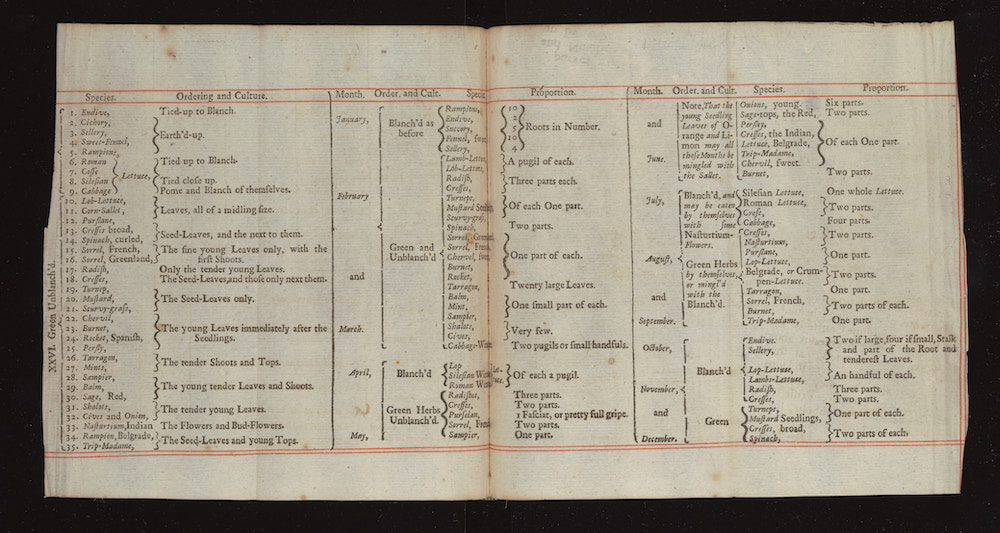 Species. Ordering and Culture.
XXVI. Green Unblanch'd.
1. Endive, Tied-up to Blanch.
2. Cichory,
3. Sellery, Earth'd-up.
4. Sweet-Fennel,
5. Rampions,
6. Roman Tied-up to Blanch.
7. Cosse Lettuce,
8. Silesian Tied close up.
9. Cabbage Pome and Blanch of themselves.
10. Lob-Lettuce,
11. Corn-Sallet, Leaves, all of a midling size.
12. Purslane,
13. Cresses broad, Seed-Leaves, and the next to them.
14. Spinach, curled,
15. Sorrel, French, The fine young Leaves only, with the
16. Sorrel, Greenland, first Shoots.
17. Radish, Only the tender young Leaves.
18. Cresses, The Seed-Leaves, and those only next them.
19. Turnep,
20. Mustard, The Seed-Leaves only.
21. Scurvy-grass,
22. Chervil,
23. Burnet, The young Leaves immediately after the
24. Rocket, Spanish, Seedlings.
25. Persly,
26. Tarragon, The tender Shoots and Tops.
27. Mints,
28. Sampier,
29. Balm, The young tender Leaves and Shoots.
30. Sage, Red,
31. Shalots, The tender young Leaves.
32. Cives and Onion,
33. Nasturtium, Indian The Flowers and Bud-Flowers.
34. Rampion, Belgrade, The Seed-Leaves and young Tops.
35. Trip-Madame,
Month. Order. and Cult. Species. Proportion.
January,
February
and
March.
Blanch'd as
before
Rampions, 10
Endive, 2
Succory, 5 Roots in Number.
Fennel, sweet 10
Sellery, 4
Green and
Unblanch'd
Lamb-Lettuce, A pugil of each.
Lob-Lettuce,
Radish, Three parts each.
Cresses,
Turneps, Of each One part.
Mustard
Scurvy-grass,
Spinach, Two parts.
Sorrel, Greenland
Sorrel, French One part of each.
Chervil, sweet
Burnet,
Rocket,
Tarragon, Twenty large Leaves.
Balm,
Mint, One small part of each.
Sampier,
Shalots, Very few.
Cives,
Cabbage- Two pugils or small handfuls.
April,
May,
Blanch'd
Lop
Silesian Of each a pugil.
Roman
Green Herbs
Unblanch'd.
Radishes, Three parts.
Cresses, Two parts.
Purslan, 1 Fasciat, or pretty full gripe.
Sorrel, French Two parts.
Sampier, One part.
Month. Order. and Cult. Species. Proportion.
and
June.
Note, That the
young Seedling
Leaves of O-
range and Li-
mon may all
these Months be
mingled with
the Sallet.
Onions, young. Six parts.
Sage-tops, the Red, Two parts.
Persley,
Cresses, the Indian,
Lettuce, Belgrade, Of each One part.
Trip-Madame,
Chervil, sweet.
Burnet, Two parts.
July,
August,
and
September.
Blanch'd, and
may be eaten
by themselves
with some
Nasturtium-
Flowers.
Silesian Lettuce, One whole Lettuce.
Roman Lettuce, Two parts.
Cress,
Cabbage, Four parts.
Green Herbs
by themselves,
or mingl'd
with the
Blanch'd.
Cresses, Two parts.
Nasturtium,
Purslane, One part.
Lop-Lettuce,
Belgrade, or Crum- Two parts.
pen-Lettuce.
Tarragon, One part.
Sorrel, French, Two parts of each.
Burnet,
Trip-Madame, One part.
October,
November,
and
December.
Blanch'd
Endive. Two if large, four if small, Stalk
Sellery, and part of the Root and
tenderest Leaves.
Lop-Lettuce, An handful of each.
Lambs-Lettuce,
Radish, Three parts.
Cresses, Two parts.
Green
Turneps, One part of each.
Mustard Seedlings,
Cresses, broad, Two parts of each.
Spinach,